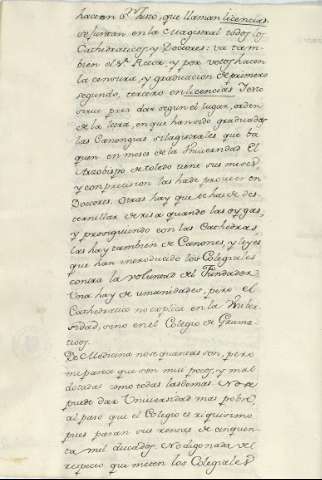 hacen a Vs. Juro, que llaman licencias
se juntan en la Magistral todos los
Cathedraticos y Doctores: va tam-
bien el Sr. Rector y por votos hacen
la censura, y graduacion de primero
segundo, tercero en licencias. Esto
sirve para dar segun el lugar, orden
de la letra, en que han sido graduados
las Canongias Magistrales que ba-
quen en meses de la Universidad. El
Arzobispo de Toledo tiene sus meses,
y con precision las ha de proveer en
Doctores. Otras hay que se han de des-
ternillar de risa quando las oygas,
y prosiguiendo con las Cathedras,
las hay tambien de Canones, y leyes
que han introducido los Colegiales
contra la voluntad del Fundador.
Una hay de umanidades, pero el
Cathedratico no explica en la Univer-
sidad, sino en el Colegio de Grama-
ticos.
De Medicina no se quantas son, pero
me parece que son muy pocas, y mal
dotadas como todas las demas. No se
puede dar Universidad mas pobre,
al paso que el Colegio es riquisimo
pues pasan sus rentas de cinquen-
ta mil ducados. No digo nada del
respecto que meten los Colegiales